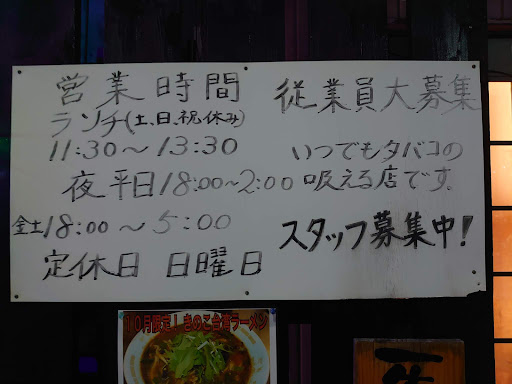 営業時間
ランチ(土、日、祝休み)
11:30～13:30
夜平日18:00～2:00
金土18:00～5:00
定休日 日曜日
従業員大募集
いつでもタバコの
吸える店です。
スタッフ募集中!
10月限定！きのこ台湾ラーメン